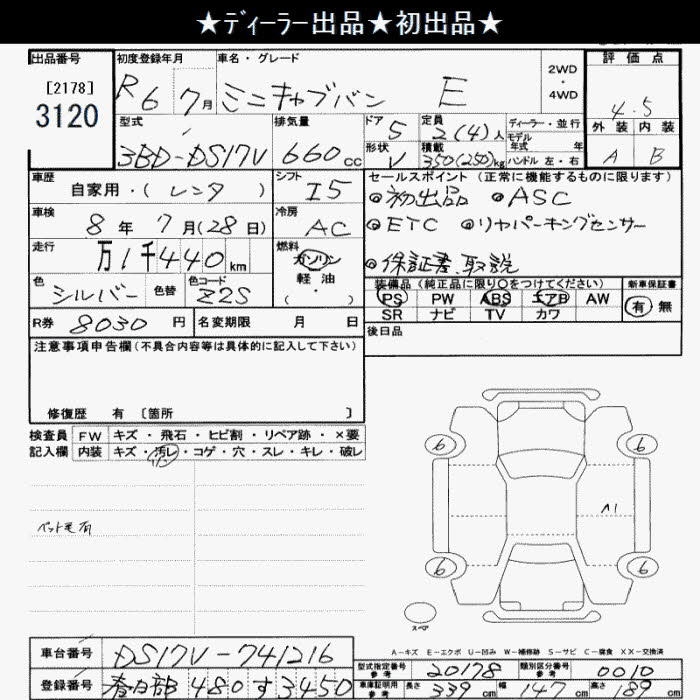 ★ﾃﾞｨｰﾗｰ出品★初出品★
出品番号 初度登録年月 車名・グレード 2WD・4WD 評価点
[2178]
3120
R6 7月 ミニキャブバン E 4.5
型式 排気量 ドア 5 定員 2(4)人 ディーラー・並行 外装 内装
モデル年式 年
3BD-DS17V 660cc 形状 V 積載 350(250)kg ハンドル 左・右 A B
車歴 シフト セールスポイント (正常に機能するものに限ります)
自家用・(レンタ) I5 ◎初出品 ◎ASC
車検 冷房
8年 7月(28日) AC ◎ETC ◎リヤパーキングセンサー
走行 燃料
万1千440km ガソリン ◎保証書、取説
軽油
色 色替 色コード (・)
シルバー Z2S
装備品 (純正品に限り〇をつけてください) 新車保証書
PS PW ABS エアB AW 有・無
SR ナビ TV カワ
R券 8030円 名変期限 月 日
後日品
注意事項申告欄 (不具合内容等は具体的に記入して下さい)
修復歴 有 〔箇所 〕
検査員 FW キズ・飛石・ヒビ割・リペア跡・×要
記入欄 内装 キズ・汚レ・コゲ・穴・スレ・キレ・破レ
6 6
ペット毛有
A1
6 6
スペア
A-キズ E-エクボ U-凹み W-補修跡 S-サビ C-腐食 XX-交換済
車台番号 DS17V-741216
型式指定番号 参考 20178 類別区分番号 参考 0010
登録番号 春日部 480 す 3450
車庫証明用 参考 長さ 339cm 幅 147cm 高さ 189cm